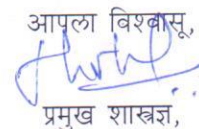 आपला विश्वासू,
प्रमुख शास्त्रज्ञ,